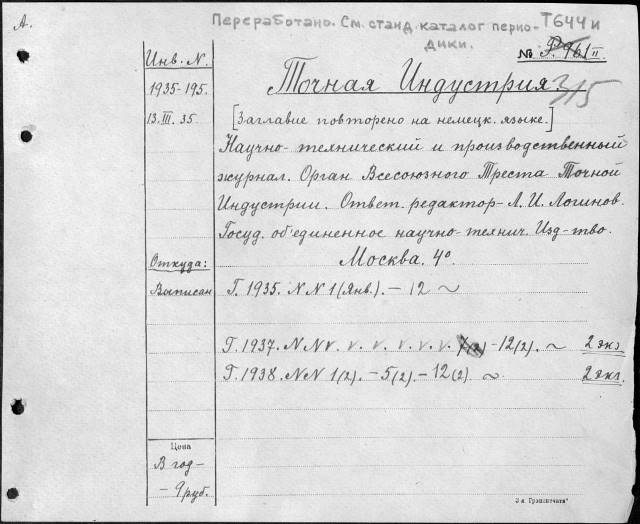 А.
Переработано. См. станд. каталог перио-
дики.
Т644 и
№ Р-961 II
315
Инв. N.
1935-195.
13.III.35.
Точная Индустрия.
[Заглавие повторено на немецк. языке.]
Научно-технический и производственный
журнал. Орган Всесоюзного Треста Точной
Индустрии. Ответ. редактор - Л. И. Логинов.
Госуд. об'единенное научно-технич. Изд-тво.
Москва. 4º.
Откуда:
Выписан
Г. 1935. NN 1 (Янв.). - 12 ~
Г. 1937. NN v. v. v. v. v. v. 7(2) - 12(2). ~ 2 экз
Г. 1938. NN 1(2). - 5(2). - 12(2) ~ 2 экз.
Цена
В год -
- 9 руб.